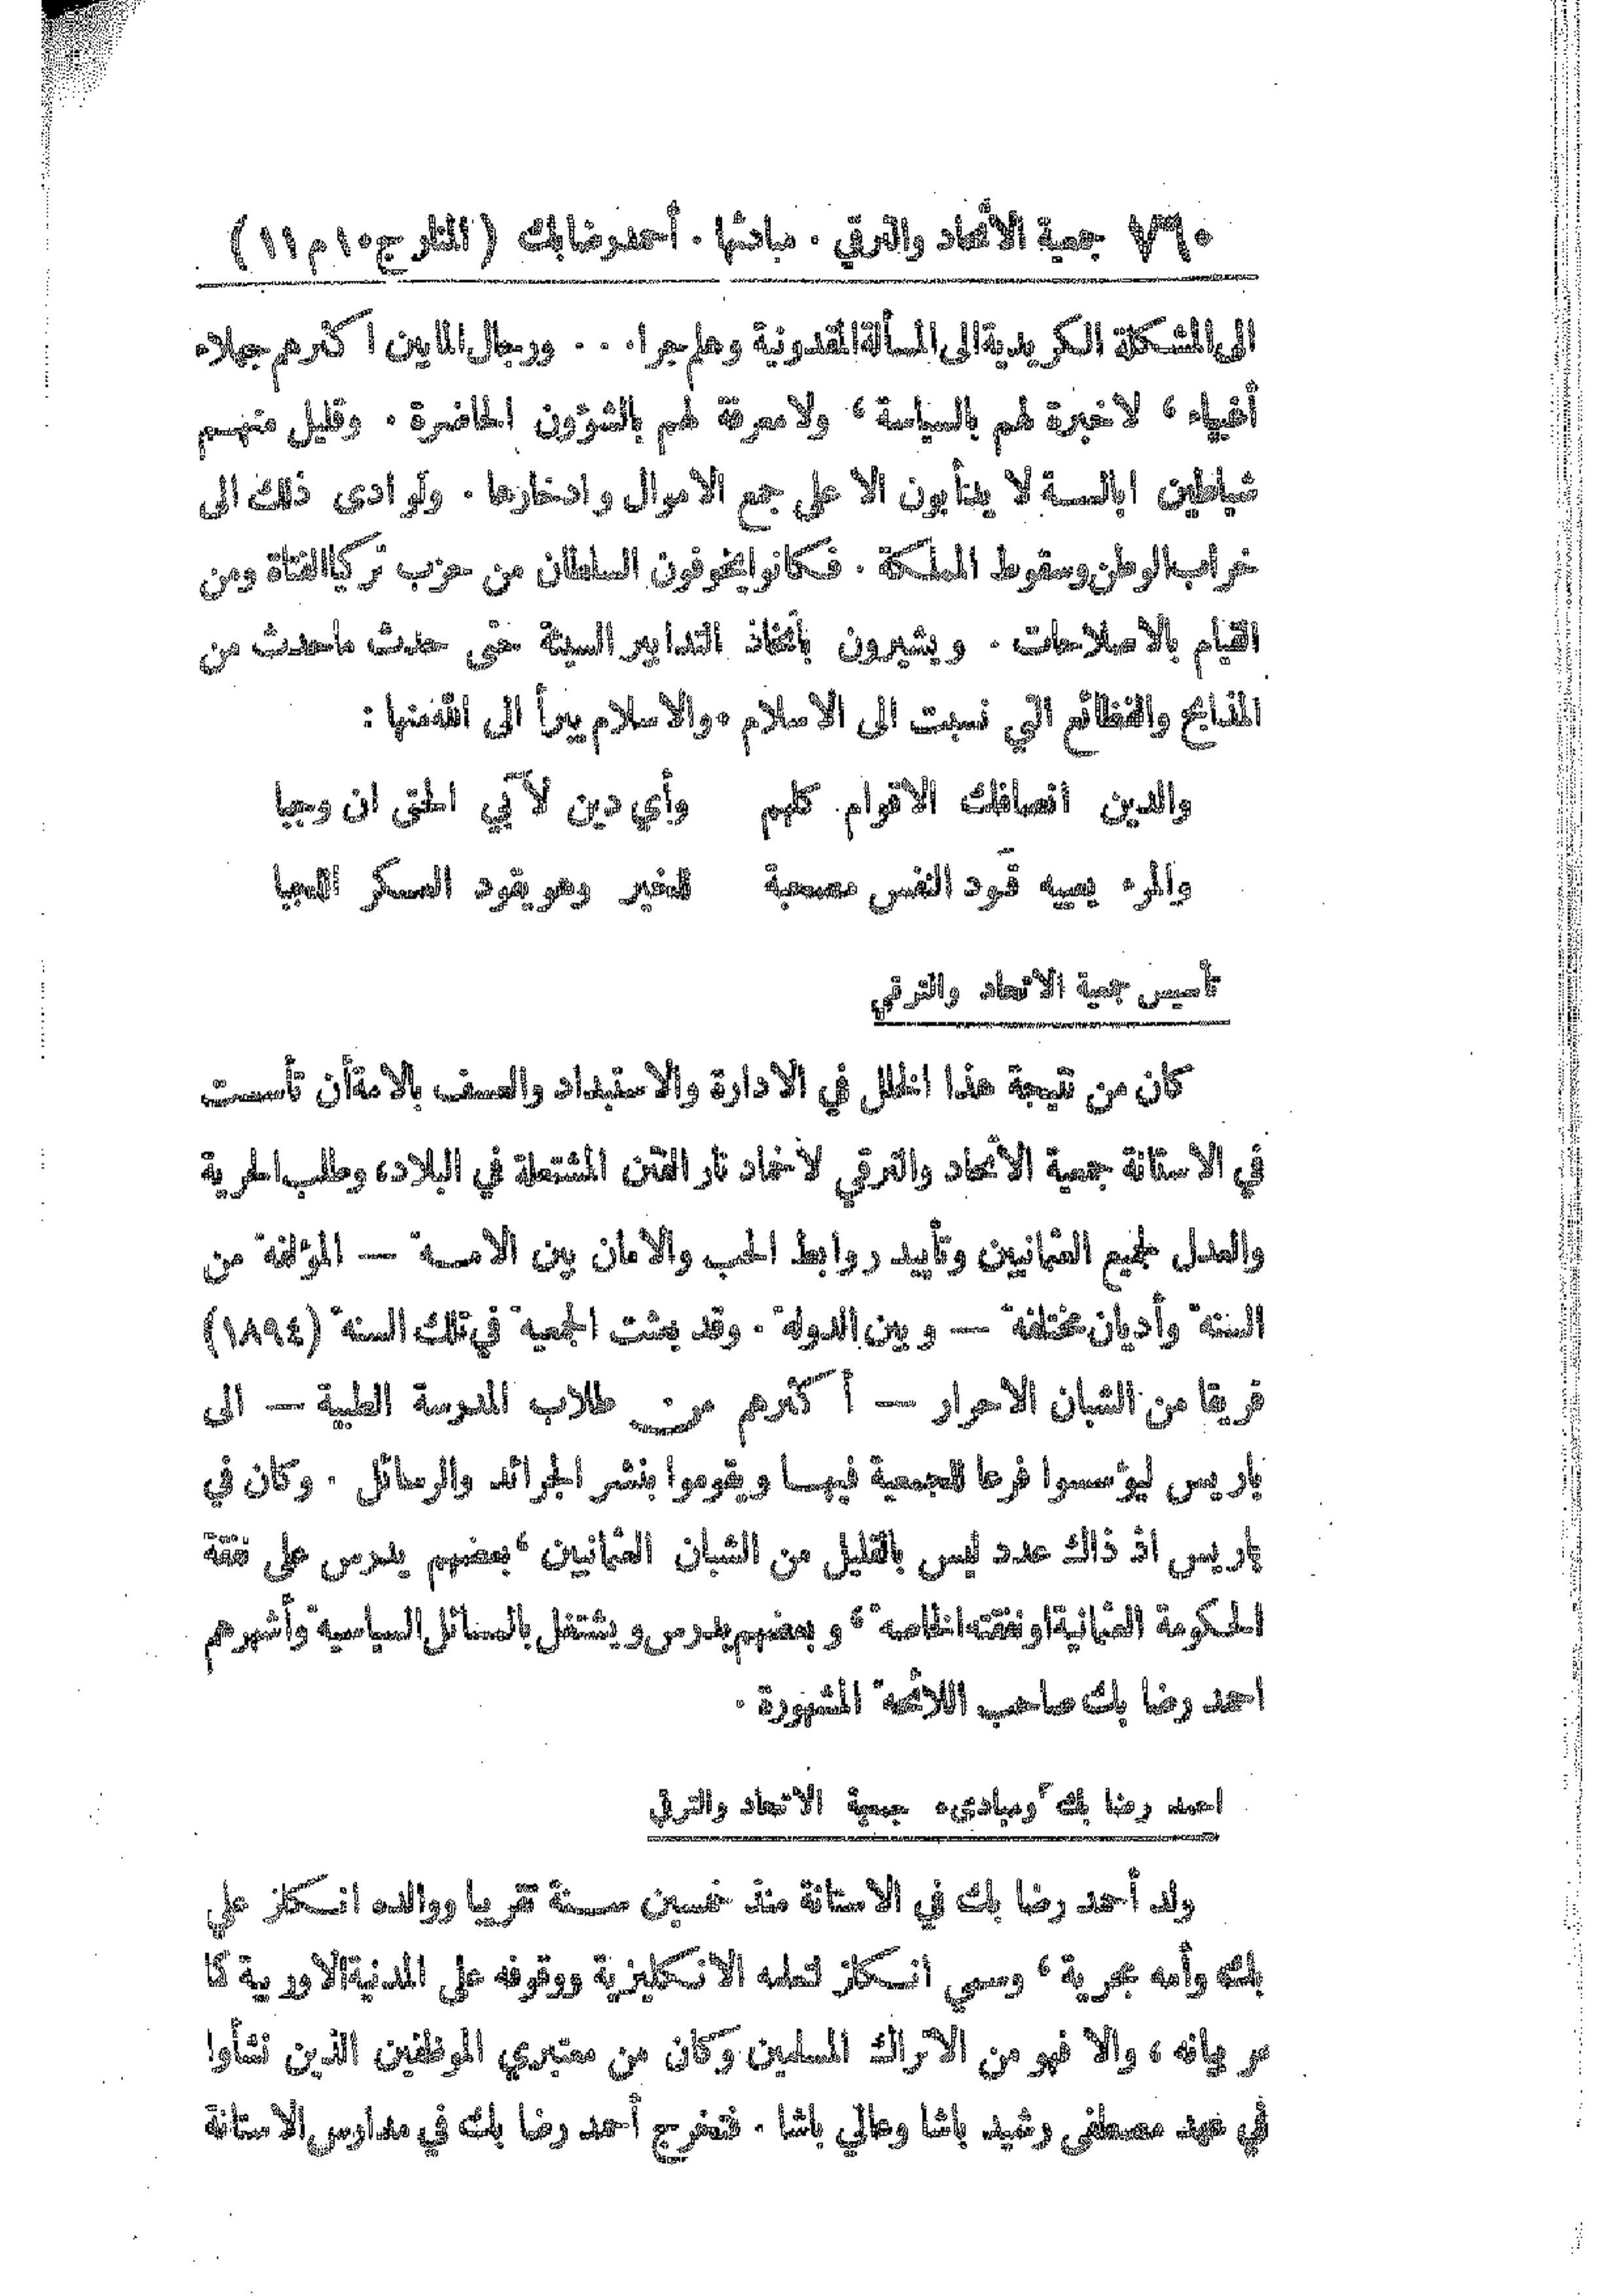 ٧٦٠ جمعية الاتحاد والترقي . مبادئها . أحمد رضا بك ( المنار ج ١٠ م ١١ )
الى المشكلة الكريدية الى المسألة المقدونية وهلم جرا . . . ورجال المابين اكثرهم جهلاء
أغبياء ، لا خبرة لهم بالسياسة ، ولا معرفة لهم بالشؤون الحاضرة . وقليل منهم
شياطين ابالسة لا يدأبون الا على جمع الاموال وادخارها . ولو ادى ذلك الى
خراب الوطن وسقوط المملكة . فكانوا يخوفون السلطان من حزب تركيا الفتاة ومن
القيام بالاصلاحات . ويشيرون بأتخاذ التدابير السيئة حتى حدث ما حدث من
المذابح والفظائع التي نسبت الى الاسلام . والاسلام يبرأ الى الله منها :
والدين انصافك الاقوام كلهم وأي دين لآبي الحق ان وجبا
والمرء يعييه قَود النفس مصحبة للخير وهو يقود العسكر اللجبا
تأسيس جمعية الاتحاد والترقي
كان من نتيجة هذا الخلل في الادارة والاستبداد والعسف بالامة أن تأسست
في الاستانة جمعية الاتحاد والترقي لاخماد نار الفتن المشتعلة في البلاد، وطلب الحرية
والعدل لجميع العثمانيين وتأييد روابط الحب والامان بين الامة — المؤلفة من
السنة وأديان مختلفة — وبين الدولة . وقد بعثت الجمعية في تلك السنة (١٨٩٤)
فريقا من الشبان الاحرار — أكثرهم من طلاب المدرسة الطبية — الى
باريس ليؤسسوا فرعا للجمعية فيها ويقوموا بنشر الجرائد والرسائل . وكان في
باريس اذ ذاك عدد ليس بالقليل من الشبان العثمانيين ، بعضهم يدرس على نفقة
الحكومة العثمانية او نفقته الخاصة ، وبعضهم يدرس ويشتغل بالمسائل السياسية وأشهرهم
احمد رضا بك صاحب اللائحة المشهورة .
احمد رضا بك ومبادىء جمعية الاتحاد والترقي
ولد أحمد رضا بك في الاستانة منذ خمسين سنة تقريبا ووالده انكلز علي
بك وأمه مجرية ، وسمي انكلز لتعلمه الانكليزية ووقوفه على المدنية الاوربية كما
مر بيانه ، والا فهو من الاتراك المسلمين وكان من معتبري الموظفين الذين نشأوا
في عهد مصطفى رشيد باشا وعالي باشا . فتخرج أحمد رضا بك في مدارس الاستانة